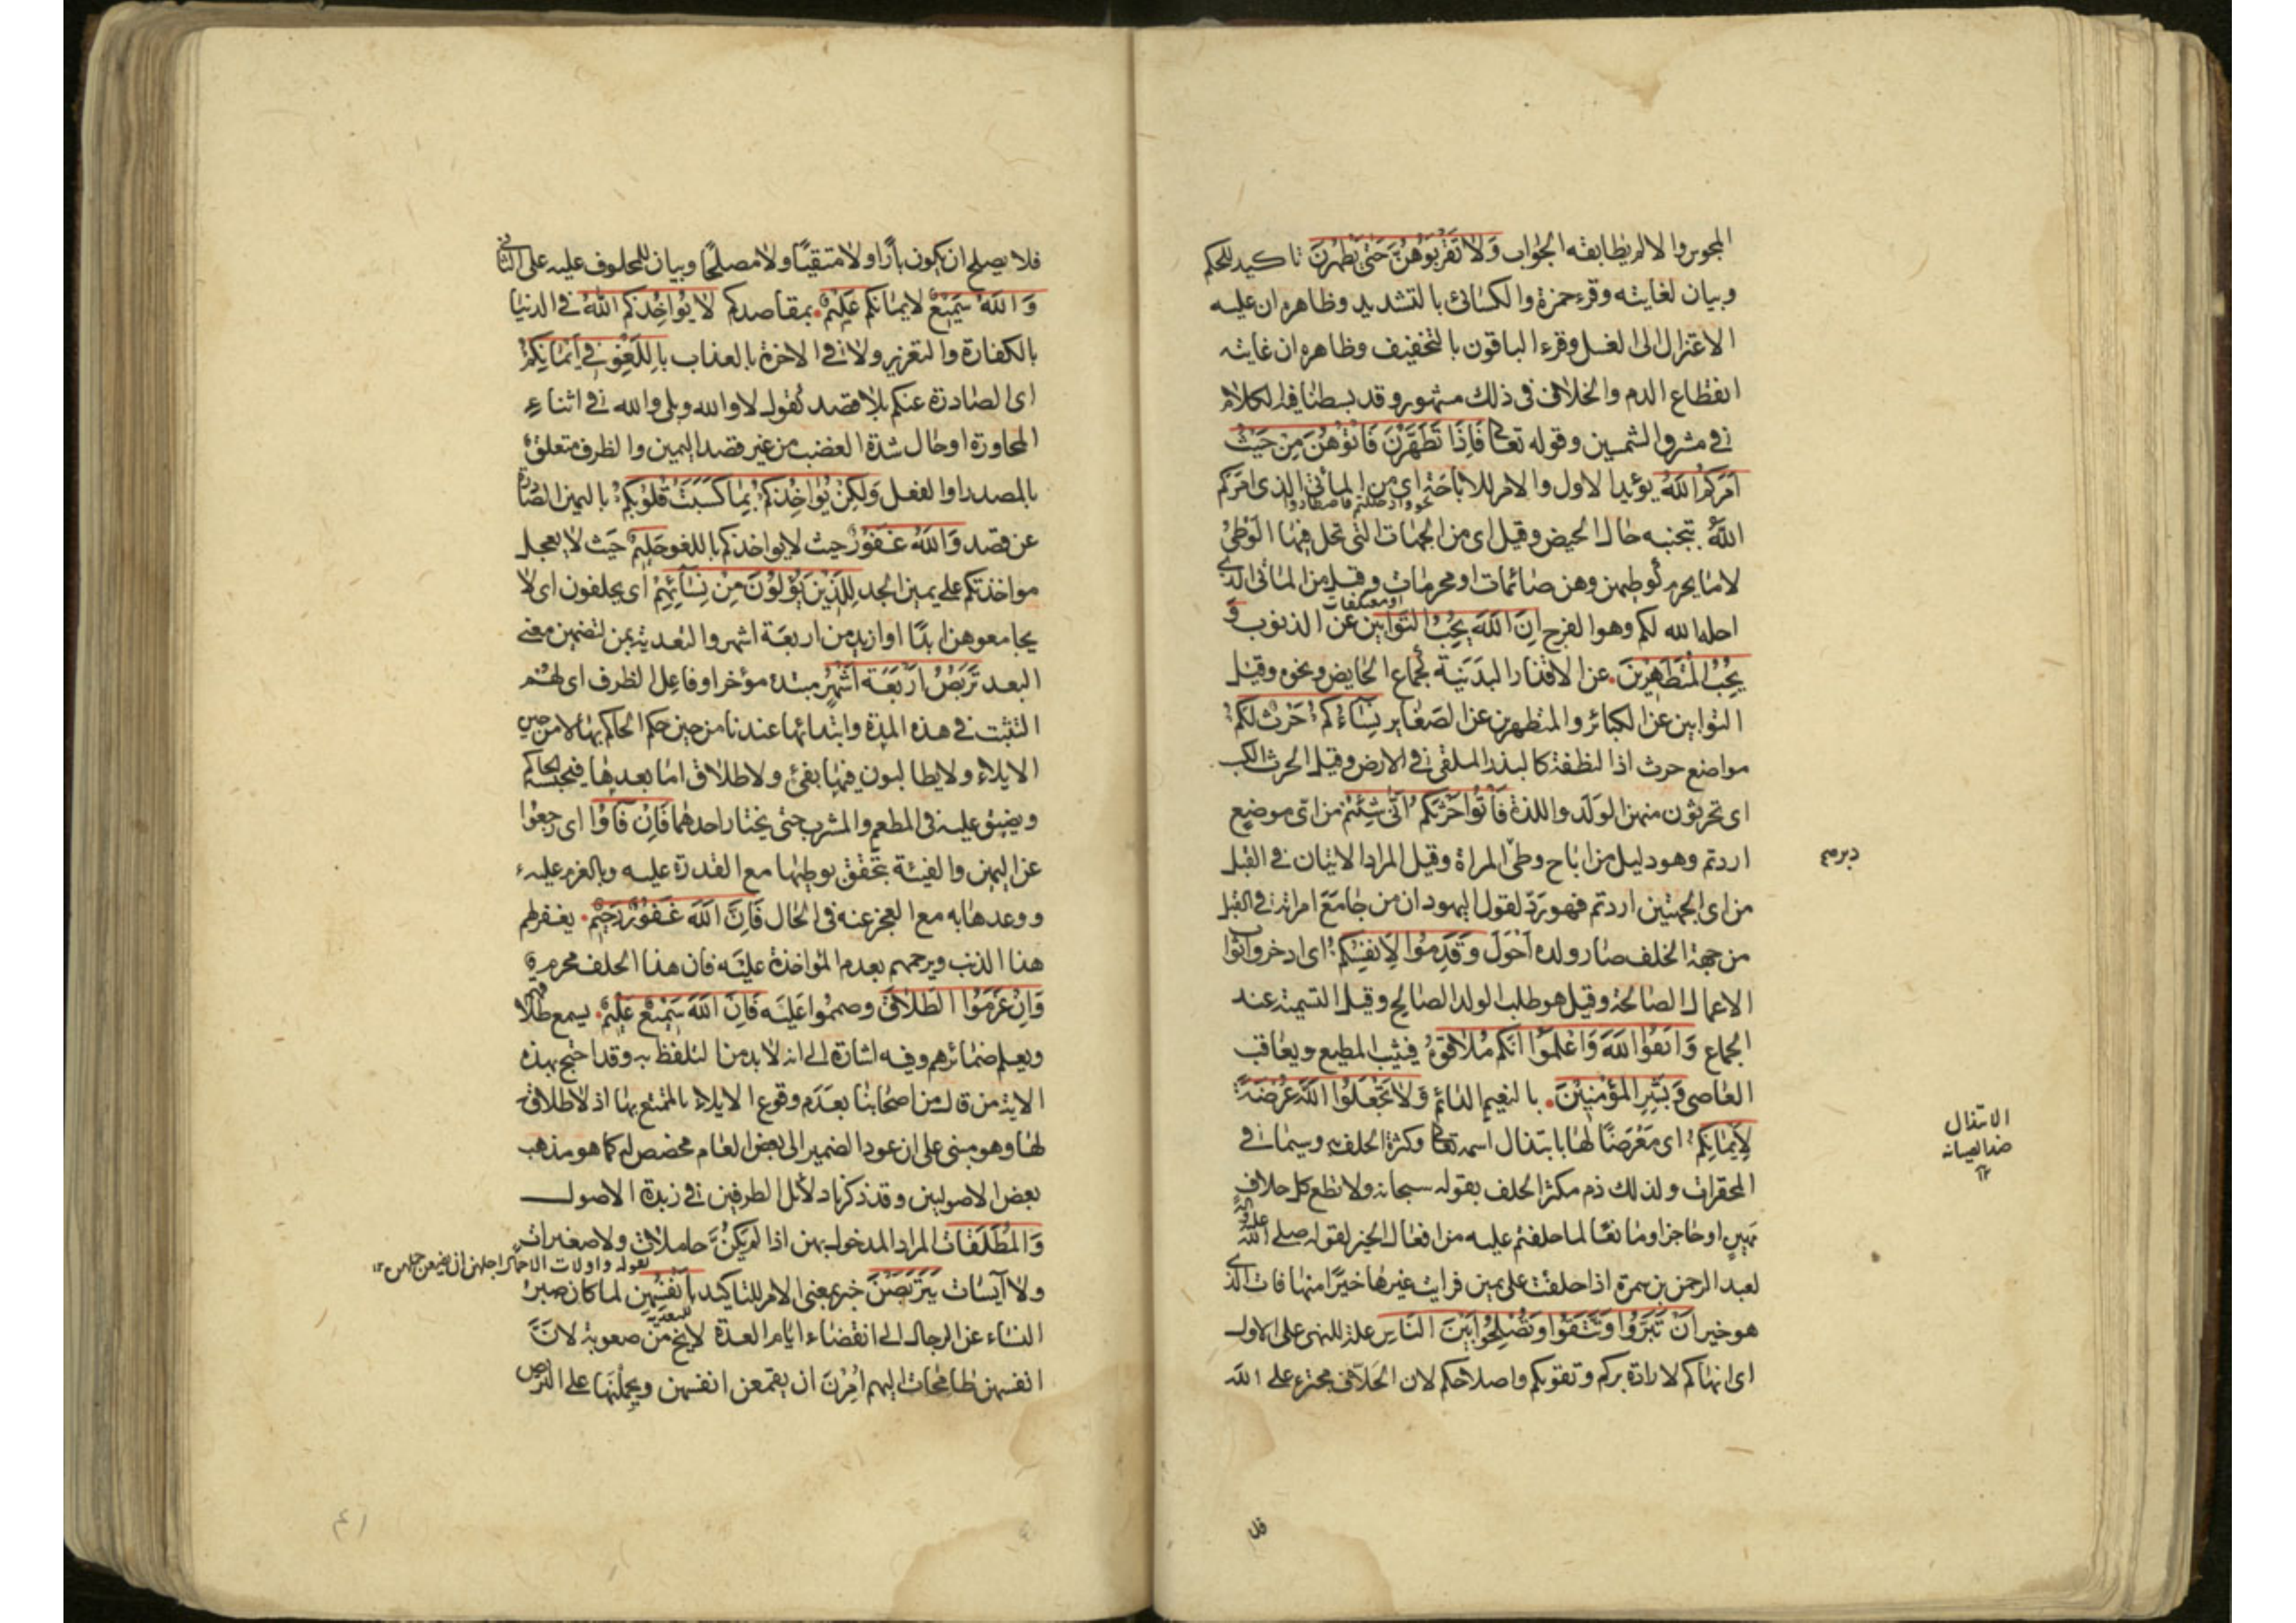 المجوس والا لم يطابقه الجواب وَلَا تَقْرَبُوهُنَّ حَتّٰى يَطْهُرْنَ تاكيد للحكم
وبيان لغايته وقرء حمزة والكسائى بالتشديد وظاهره ان عليه
الاعتزال الى الغسل وقرء الباقون بالتخفيف وظاهره ان غايته
انقطاع الدم والخلاف فى ذلك مشهور وقد بسطنا فيه الكلام
فى مشرق الشمسين وقوله تعالى فَاِذَا تَطَهَّرْنَ فَاْتُوْهُنَّ مِنْ حَيْثُ
اَمَرَكُمُ اللّٰهُ يؤيد الاول والامر للاباحة اى من المأتى الذى امركم
نحو واذا حللتم فاصطادوا
اللّٰه بتجنبه حال الحيض وقيل اى من الجهات التى تحل فيها الوَطْىُ
لا ما يحرم كوطيهن وهن صائمات او محرمات وقيل من المأتى الذى
او معتكفات
احله الله لكم وهو الفرج اِنَّ اللّٰهَ يُحِبُّ التَّوَّابِيْنَ عن الذنوب وَ
يُحِبُّ الْمُتَطَهِّرِيْنَ. عن الاقذار البدنية كجماع الحايض ونحوه وقيل
التوابين عن الكبائر والمتطهرين عن الصغاير نِسَاۤءُكُمْ حَرْثٌ لَكُمْ
مواضع حرث اذ النطفة كالبذر الملقى فى الارض وقيل الحرث الكسب
اى تحرثون منهن الولد واللذة فَاْتُوا حَرْثَكُمْ اَنّٰى شِئْتُمْ من اى موضع
اردتم وهو دليل من اباح وطى المراة وقيل المراد الاتيان فى القبل
دبرها
من اى الجهتين اردتم فهو ردّ لقول اليهود ان من جامَعَ امراته فى القبل
من جهة الخلف صار ولده اَحْوَلَ وَقَدِّمُوا لِاَنْفُسِكُمْ اى ادخروا ثواب
الاعمال الصالحة وقيل هو طلب الولد الصالح وقيل التسمية عند
الجماع وَاتَّقُوا اللّٰهَ وَاعْلَمُوْا اَنَّكُمْ مُلَاقُوْهُ فيثيب المطيع ويعاقب
العاصى وَبَشِّرِ الْمُؤْمِنِيْنَ. بالنعيم الدائم وَلَا تَجْعَلُوا اللّٰهَ عُرْضَةً
لِاَيْمَانِكُمْ اى مَعْرَضًا لها بابتذال اسمه تعالى وكثرة الحلف به وسيما فى
الابتذال
ضد الصيانة
١٢
المحقرات ولذلك ذم مكثر الحلف بقوله سبحانه ولا تطع كل حلاف
مهين او حاجزا ومانعًا لما حلفتم عليه من افعال الخير لقوله صلى الله عليه وآله
لعبد الرحمن بن سمرة اذا حلفت على يمين فرايت غيرها خيرًا منها فات الذى
هو خير اَنْ تَبَرُّوْا وَتَتَّقُوْا وَتُصْلِحُوْا بَيْنَ النَّاسِ علة للنهى على الاول
اى انهاكم لارادة بركم وتقويكم واصلاحكم لان الحَلّاف مجترء على الله
فلا
فلا يصلح ان يكون بارًّا ولا متقيًا ولا مصلحًا وبيان للمحلوف عليه على الثانى
وَاللّٰهُ سَمِيْعٌ لايمانكم عَلِيْمٌ. بمقاصدكم لَا يُؤَاخِذُكُمُ اللّٰهُ فى الدنيا
بالكفارة والتعزير ولا فى الاخرة بالعذاب بِاللَّغْوِ فِىْ اَيْمَانِكُمْ
اى الصادرة عنكم بلا قصد كقول لا والله وبلى والله فى اثناء
المحاورة او حال شدة الغضب من غير قصد اليمين والظرف متعلق
بالمصدر او الفعل وَلٰكِنْ يُؤَاخِذُكُمْ بِمَا كَسَبَتْ قُلُوْبُكُمْ باليمين الصادرة
عن قصد وَاللّٰهُ غَفُوْرٌ حيث لا يواخذكم باللغو حَلِيْمٌ حيث لا يعجل
مواخذتكم على يمين الجد لِلَّذِيْنَ يُؤْلُوْنَ مِنْ نِسَاۤئِهِمْ اى يحلفون اى لا
يجامعوهن ابدًا او ازيد من اربعة اشهر والتعدية بمن لتضمين معنى
البعد تَرَبُّصُ اَرْبَعَةِ اَشْهُرٍ مبتدء مؤخر او فاعل الظرف اى لهم
التثبت فى هذه المدة وابتدائها عندنا من حين حكم الحاكم بها لا من حين
الايلاء ولا يطالبون فيها بفئ ولا طلاق اما بعدها فيحبسه الحاكم
ويضيق عليه فى المطعم والمشرب حتى يختار احدهما فَاِنْ فَاۤؤُا اى رجعوا
عن اليمين والفيئة تحقق بوطيها مع القدرة عليه وبالعزم عليه
ووعدها به مع العجز عنه فى الحال فَاِنَّ اللّٰهَ غَفُوْرٌ رَحِيْمٌ. يغفر لهم
هذا الذنب ويرحمهم بعدم المؤاخذة عليه فان هذا الحلف محرم
وَاِنْ عَزَمُوا الطَّلَاقَ وصمموا عليه فَاِنَّ اللّٰهَ سَمِيْعٌ عَلِيْمٌ. يسمع طلاقهم
ويعلم ضمائرهم وفيه اشارة الى انه لا بد من التلفظ به وقد احتج بهذه
الاية من قال من اصحابنا بعدم وقوع الايلاء بالمتمتع بها اذ لا طلاق
لها وهو مبنى على ان عود الضمير الى بعض العام مخصص له كما هو مذهب
بعض الاصوليين وقد ذكرنا دلائل الطرفين فى زبدة الاصول
وَالْمُطَلَّقَاتُ المراد المدخول بهن اذا لم يكنَّ حاملات ولا صغيرات
لقوله واولات الاحمال اجلهن ان يضعن حملهن ١٢
ولا آيسات يَتَرَبَّصْنَ خبر بمعنى الامر للتاكيد بِاَنْفُسِهِنَّ لما كان صبر
للتعدية
النساء عن الرجال الى انقضاء ايام العدة لا يخ من صعوبة لانَّ
انفسهن طامحات اليهم اُمِرْنَ ان يقمعن انفسهن ويحملنها على التربص
٤١